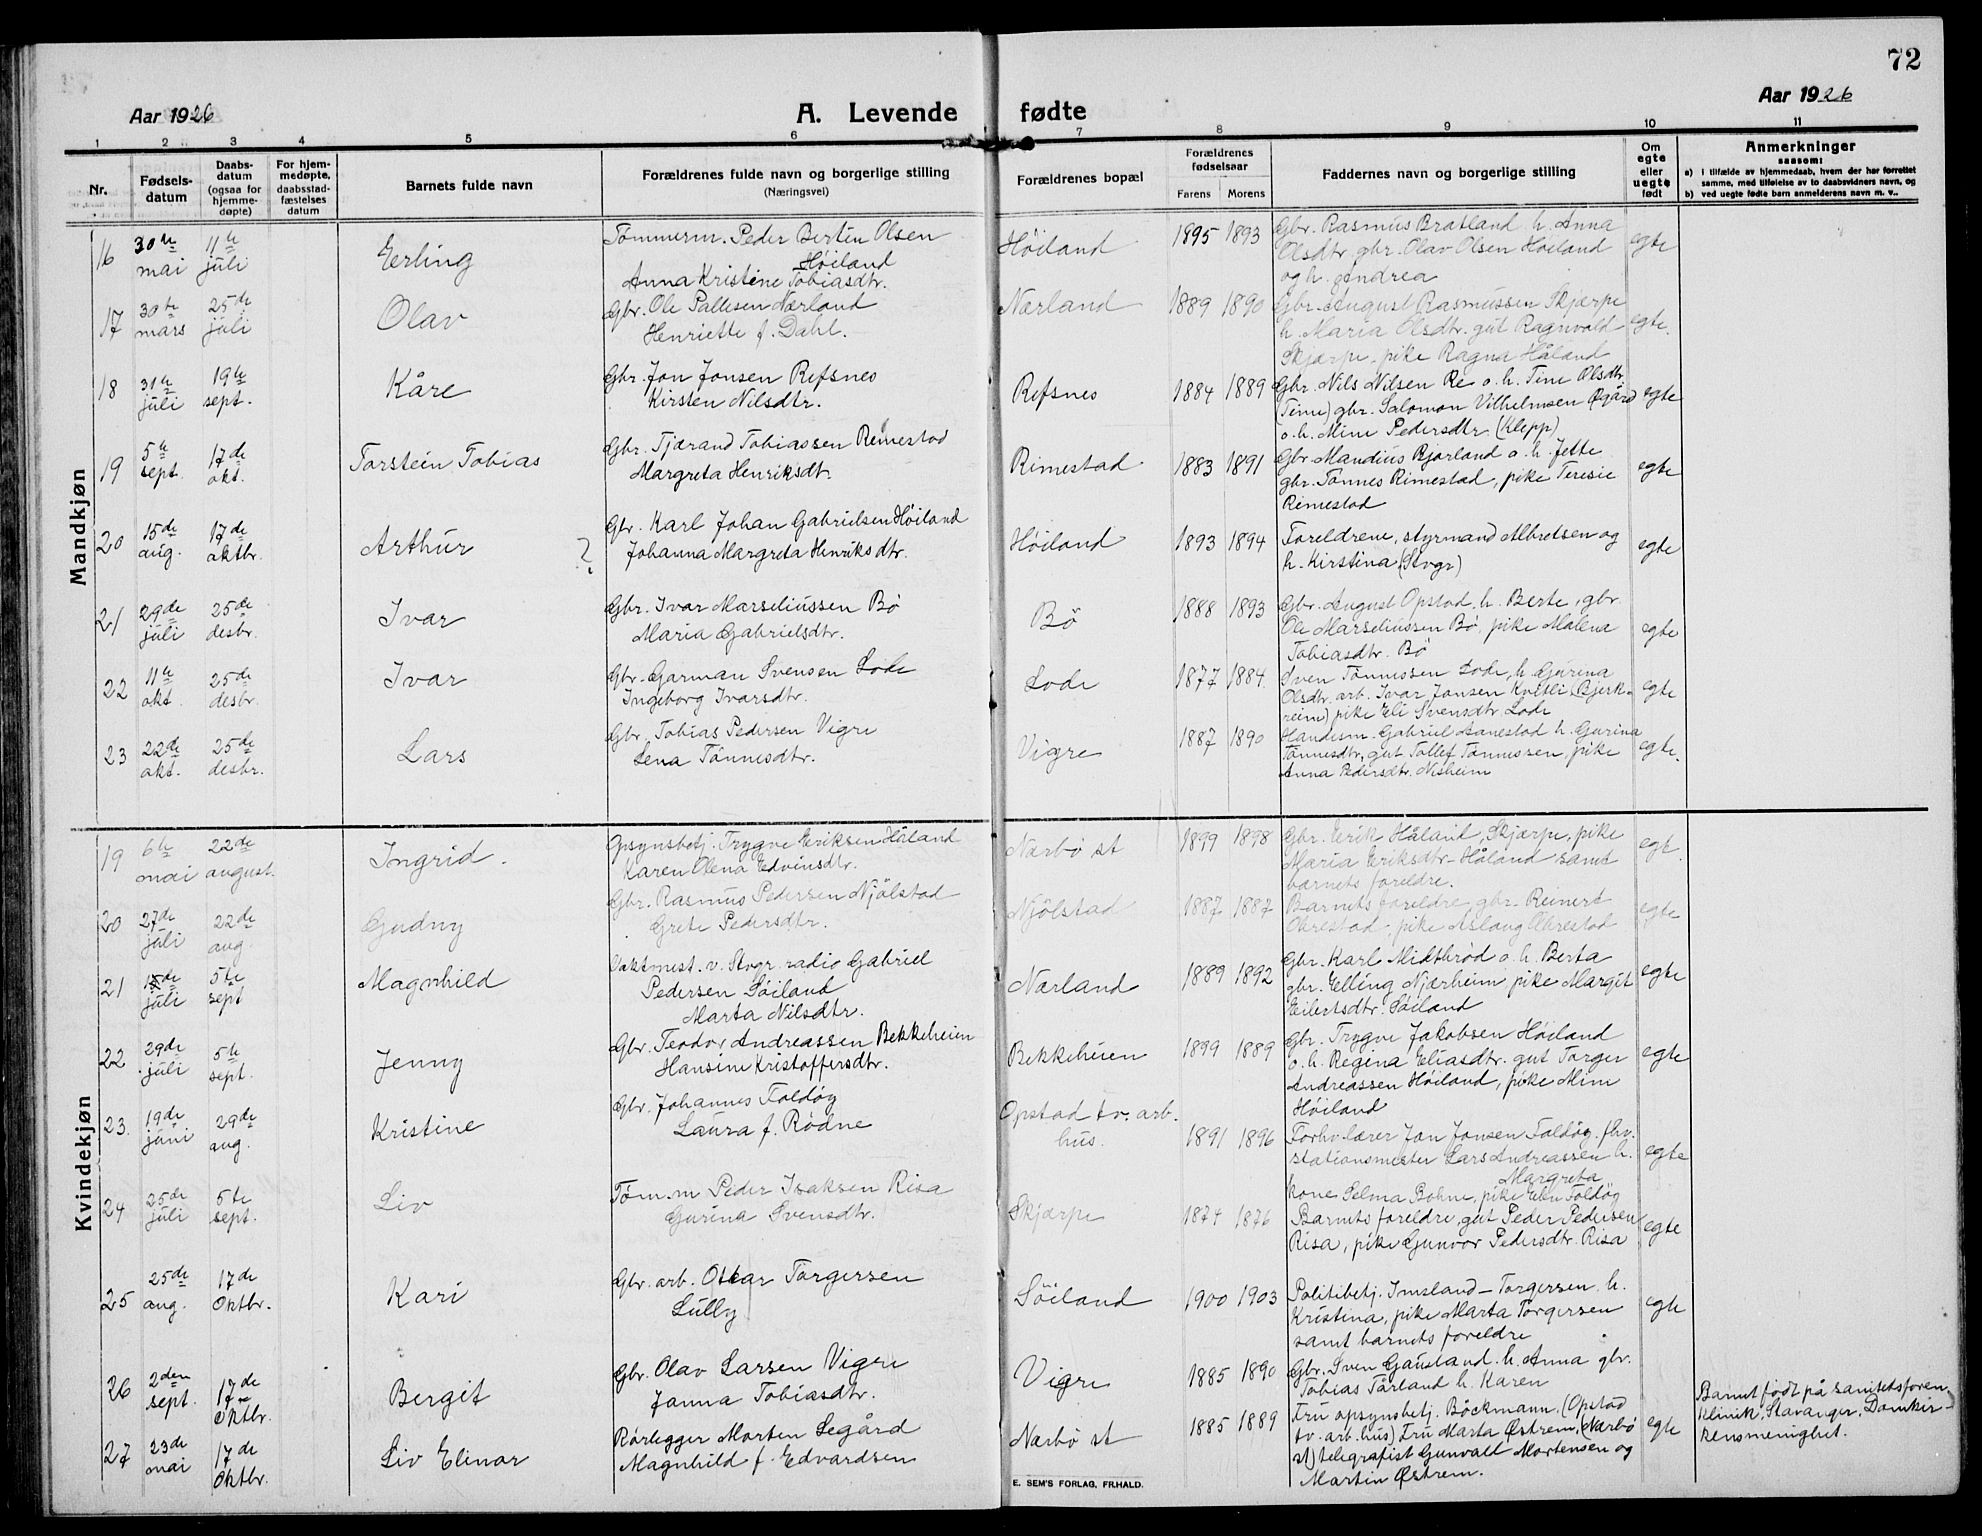 72
Aar 1926
A. Levende fødte
Aar 1926
1 2 3 4 5 6 7 8 9 10 11
Nr.
Fødsels-
datum
Daabs-
datum
(ogsaa for
hjemme-
døpte)
For hjem-
medøpte,
daabsstad-
fæstelses
datum
Barnets fulde navn
Forældrenes fulde navn og borgerlige stilling
(Næringsvei)
Forældrenes bopæl
Forældrenes
fødselsaar
Farens Morens
Faddernes navn og borgerlige stilling
Om
egte
eller
uegte
født
Anmerkninger
saasom:
a) i tilfælde av hjemmedaab, hvem der har forrettet
samme, med tilføielse av to daabsvidners navn, og
b) ved uegte fødte barn anmelderens navn m. v..
Mandkjøn
16 30te mai 11te juli Erling
Tømmerm. Peder Bertin Olsen
Høiland
Anna Kristine Tobiasdtr.
Høiland 1895 1893
Gbr. Rasmus Bratland h. Anna
Olsdtr gbr. Olav Olsen Høiland
og h. Andrea
egte
17 30te mars 25de juli Olav
Gbr. Ole Pallesen Nærland
Henriette f. Dahl.
Nærland 1889 1890
Gbr. August Rasmussen Skjærpe
h. Maria Olsdtr. gut Ragnvald
Skjærpe, pike Ragna Håland
egte.
18 31te juli 19te sept. Kåre
Gbr. Jon Jonsen Refsnes
Kirsten Nilsdtr.
Refsnes 1884 1889
Gbr. Nils Nilsen Re o. h. Tine Olsdtr
(Time) gbr. Salomon Vilhelmsen Øgård
o. h. Mine Pedersdtr (Klepp)
egte
19 5te sept. 17de okt. Torstein Tobias
Gbr. Tjærand Tobiassen Rimestad
Margreta Henriksdt.
Rimestad 1883 1891
Gbr Mandius Bjorland o. h. Jette
gbr. Tønnes Rimestad, pike Teresie
Rimestad
egte
20 15de aug. 17de oktbr. Arthur ?
Gbr. Karl Johan Gabrielsen Høiland
Johanna Margreta Henriksdtr.
Høiland 1893 1894
Foreldrene, styrmand Albretsen og
h. Kirstina (Stvgr)
egte
21 29de juli 25de desbr. Ivar
Gbr. Ivar Marseliussen Bø
Maria Gabrielsdtr.
Bø 1888 1893
Gbr. August Opstad, h. Berte, gbr.
Ole Marseliussen Bø, pike Malena
Tobiasdtr. Bø
egte
22 11te okt. 25de desbr. Ivar
Gbr. Garman Svensen Lode
Ingeborg Ivarsdtr.
Lode 1877 1884.
Sven Tønnessen Lode, h. Gurina
Olsdtr. arb. Ivar Jonsen Kvitli (Bjerk-
reim) pike Eli Svensdtr. Lode
egte
23 22de okt. 25de desbr. Lars
Gbr. Tobias Pedersen Vigre
Lena Tønnesdtr.
Vigre 1887 1890
Handelsm. Gabriel Aanestad h. Gurina
Tønnesdtr, gut Tollef Tønnessen, pike
Anna Pedersdtr.
egte.
Kvindekjøn
19 6te mai 22de august. Ingrid.
Opsynsbetj. Trygve Eriksen Håland
Karen Olena Edvinsdtr.
Nærbø st 1899 1898
Gbr. Erik Håland, Skjærpe, pike
Maria Eriksdtr. Håland samt
barnets foreldre.
egt.
20 27de juli 22de aug. Gudny
Gbr. Rasmus Pedersen Njølstad
Grete Pedersdtr.
Njølstad 1887 1887
Barnets foreldre, gbr. Reinert
Obrestad, pike Aslaug Obrestad
egte
21 juli 5te sept Magnhild
Vaktmest. v. Stvgr. radio Gabriel
Pedersen Søiland
Marta Nilsdtr.
Nærland 1889 1892
Gbr. Karl Midtbrød o. h. Berta
gbr. Elling Njærheim pike Margit
Eilertsdtr. Søiland
egte
22 29de juli 5te sept. Jenny
Gbr. Teodor Andreassen Bekkeheien
Hansine Kristoffersdtr.
Bekkeheien 1899 1889
Gbr. Trygve Jakobsen Høiland
o. h. Regina Eliasdtr. gut Torger
Andreassen Høiland, pike Mine
Høiland
egte
23. 19de juni 29de aug. Kristine
Gbr. Johannes Foldøy
Laura f. Rødne
Opstad tv. arb.
hus. 1891 1896
Forhv. lærer Jon Jonsen Foldøy. fhv.
stationsmester Lars Andreassen h.
Margreta
kone Selma Bohne, pike Elen Foldøy
egte
24 25de juli 5te sept. Liv
Tøm.m Peder Isaksen Risa
Gurina Svensdtr.
Skjærpe 1874 1876
Barnets foreldre, gut Peder Pedersen
Risa, pike Gunvor Pedersdtr. Risa
egte
25 25de aug. 17de Oktbr. Kari
Gbr. arb. Ottar Torgersen
Lully
Søiland 1900 1903
Politibetj. Imsland-Torgersen. h.
Kristina, pike Marta Torgersen
samt barnets foreldre
egte
26 2den sept. 17de Oktbr. Bergit
Gbr. Olav Larsen Vigre
Janna Tobiasdtr.
Vigre 1885 1890
Gbr. Sven Gausland. h. Anna gbr.
Tobias Tårland h. Karen
27 23de mai 17de Oktbr. Liv Elinor
Rørlegger Morten Segård
Magnhild f. Edvardsen
Nærbø st 1885 1889
Fru opsynsbetj. Böckmann, (Opstad
tv. arb. hus) Fru Marta Østrem, (Nærbø
st) telegrafist Gunvald Mortensen og
Martin Østrem.
egte
Barnet født på sanitetsforen.
klinik, Stavanger, Domkir-
kensmenighet.
E. SEM'S FORLAG, FR.HALD.